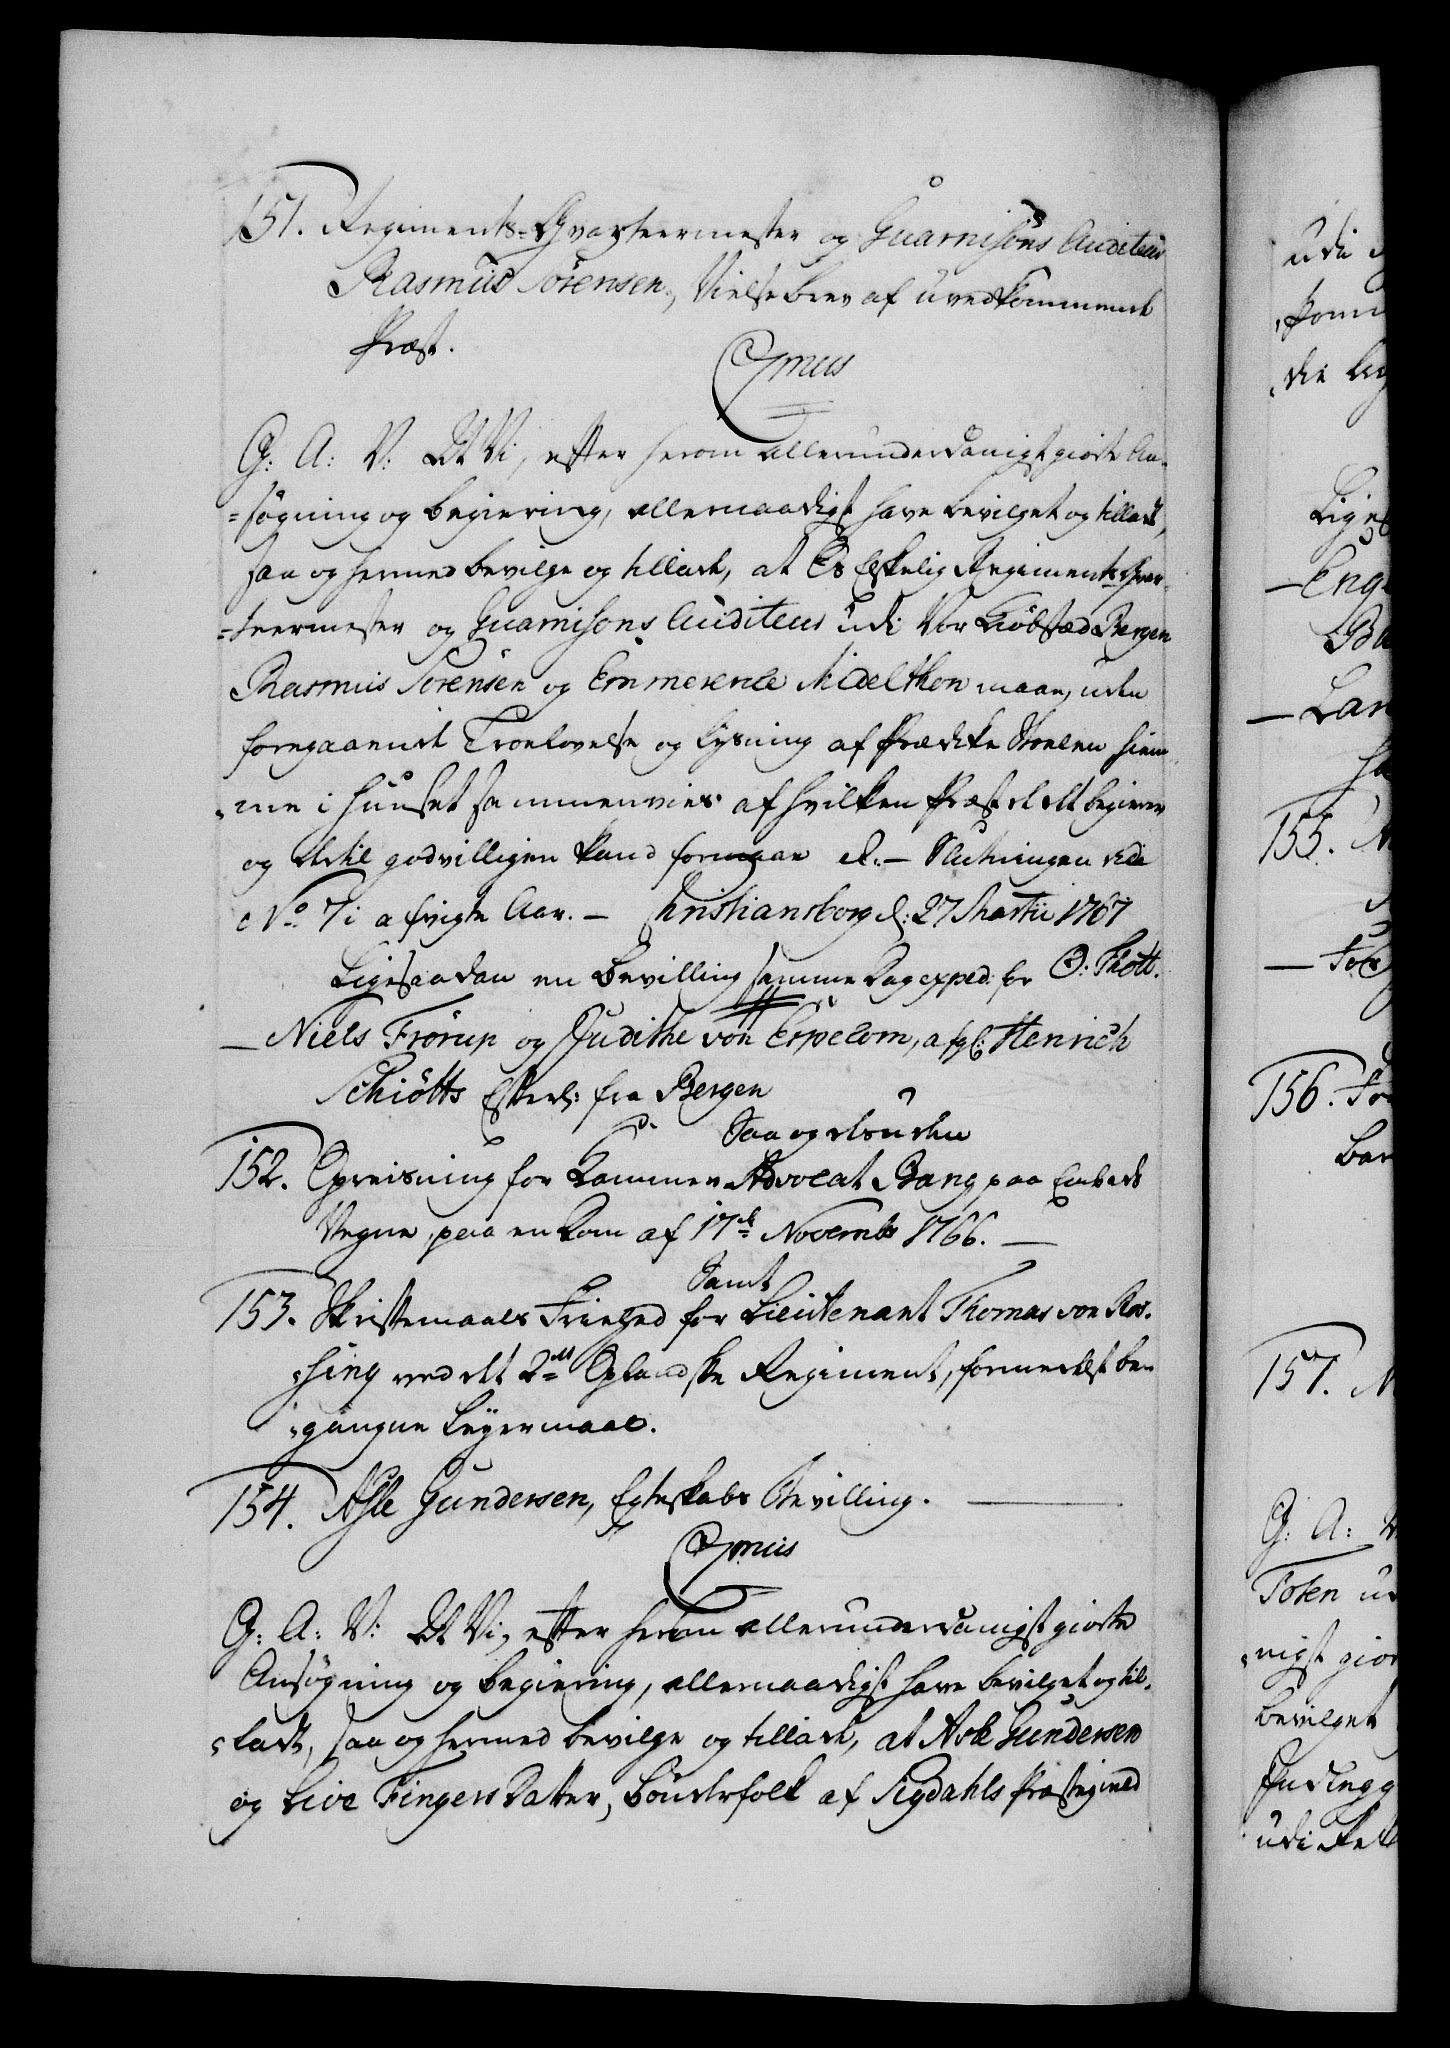 151. Regiments-Qvarteermester og Guarnisons Auditeur
Rasmus Sörensen, Vielsebrev af uvedkommende
Præst.
C7mus
G: A: V: At Vi, efter herom allerunderdanigst giorte An-
=søgning og begiering, allernaadigst have bevilget og tilladt,
saa og hermed bevilge og tillade, at Os Elskelig Regiments Qvar-
=teermester og Guarnisons Auditeur udi Vor Kiöbsted Bergen
Rasmus Sörensen og Emmerence Midelthon maae, uden
foregaaende Troelovelse og Lysning af Prædike Stoelen hiem-
me i Huuset sammenvies af hvilken Præst de det begierer
og dertil godvilligen kand formaae etc. — Slutningen vide
No. 7 i afvigte Aar. — Christiansborg d: 27 Martii 1767
Ligesaadan en Bevilling samme Dag exped. for O: Thott.
— Niels Frörup og Judithe von Erpecom, afg: Henrich
Schiötts Efterl: fra Bergen
Saa og desuden
152. Opreisning for Kammer Advocat Bang paa Embeds
Vegne, paa en Dom af 17de Novembr 1766. —
Samt
153. Skriftemaals Friehed for Lieutenant Thomas von Ros-
sing ved det 2det Oplandske Regiment, formedelst be-
gangne Leyermaal.
154. Asle Gundersen, Egteskabs Bevilling. —
C7mus
G: A: V: At Vi, efter herom allerunderdanigst giorte
Ansøgning og begiering, allernaadigst have bevilget og til-
ladt, saa og hermed bevilge og tillade, at Asle Gundersen
og Live Fingers Datter, Bönderfolk af Sigdahls Præstegield
udi
Liges
— Enge
Lar
155.
156.
bar
157.
G: A: V
Toten ud
nigst gior
bevilget
udi